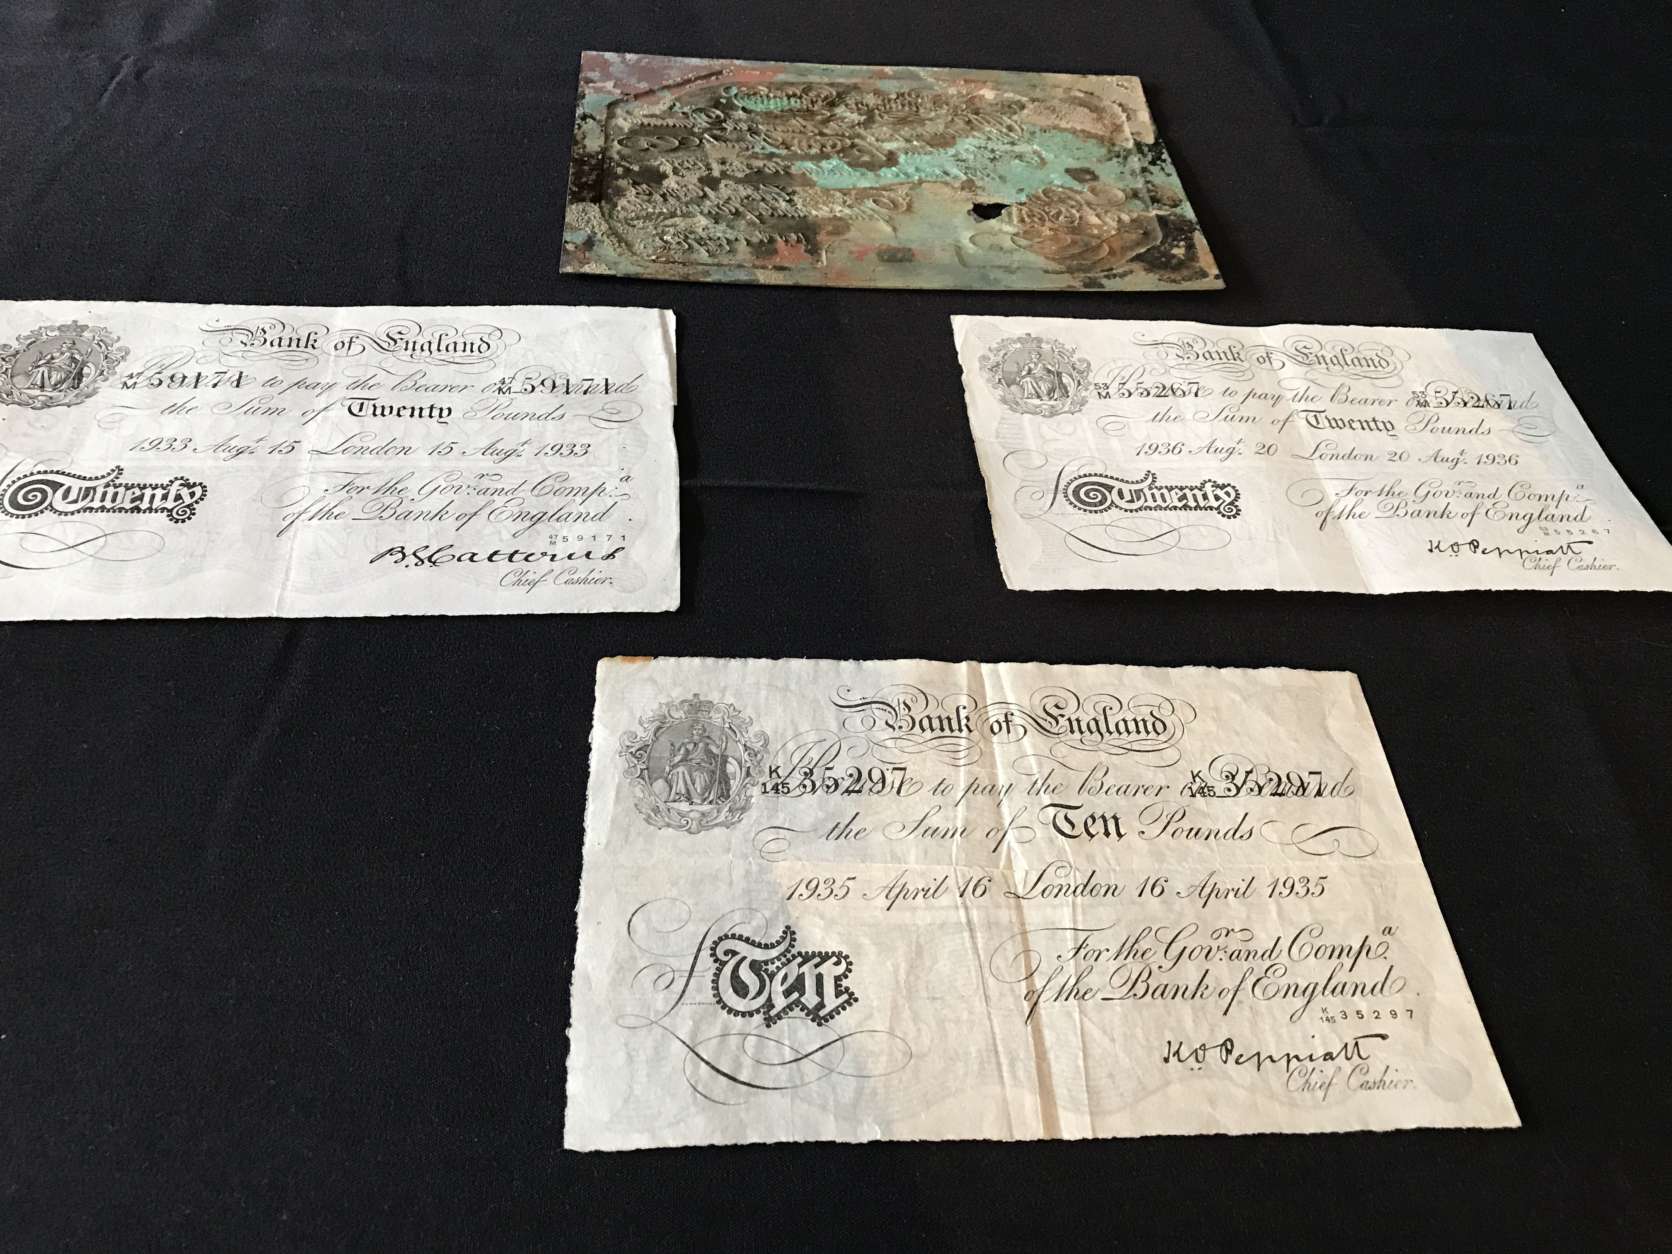 Bank of England
47 M 59171 to pay the Bearer on Demand 47 M 59171
the Sum of Twenty Pounds
1933 Augt. 15 London 15 Augt. 1933
£Twenty
For the Govr. and Compa.
of the Bank of England.
47 M 59171
B.G. Catterns
Chief Cashier.
Bank of England
53 M 55267 to pay the Bearer on Demand 53 M 55267
the Sum of Twenty Pounds
1936 Augt. 20 London 20 Augt. 1936
£Twenty
For the Govr. and Compa.
of the Bank of England
53 M 55267
K.O. Peppiatt
Chief Cashier.
Bank of England
K 145 35297 Promise to pay the Bearer on Demand K 145 35297
the Sum of Ten Pounds
1935 April 16 London 16 April 1935
£Ten
For the Govr. and Compa.
of the Bank of England.
K 145 35297
K.O. Peppiatt
Chief Cashier.